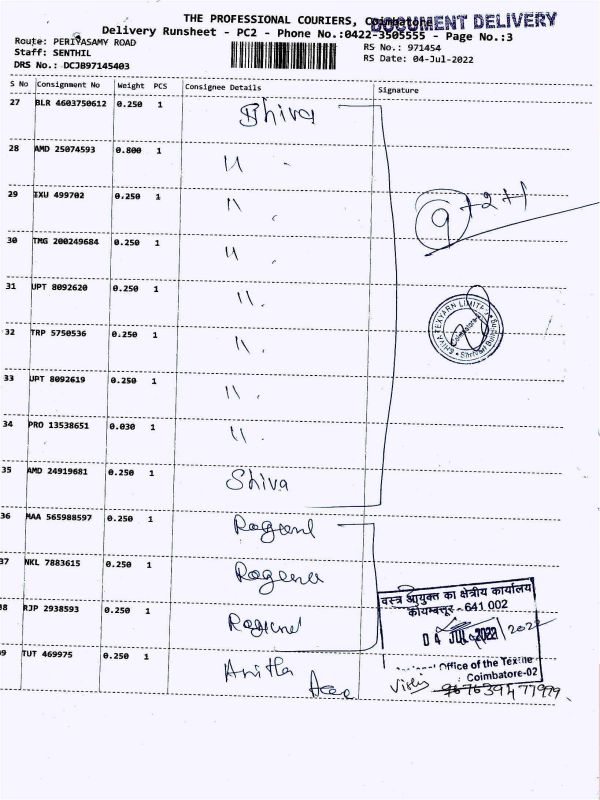 THE PROFESSIONAL COURIERS, Coimbatore
DOCUMENT DELIVERY
Delivery Runsheet - PC2 - Phone No.:0422-3505555 - Page No.:3
Route: PERIYASAMY ROAD
RS No.: 971454
Staff: SENTHIL
RS Date: 04-Jul-2022
DRS No.: DCJB97145403
S No Consignment No Weight PCS Consignee Details Signature
27 BLR 4603750612 0.250 1 Shiva
28 AMD 25074593 0.800 1 "
29 IXU 499702 0.250 1 "
9 +2+1
30 TMG 200249684 0.250 1 "
31 UPT 8092620 0.250 1 "
SHIVA TEXYARN LIMITED
Coimbatore
32 TRP 5750536 0.250 1 "
33 UPT 8092619 0.250 1 "
34 PRO 13538651 0.030 1 "
35 AMD 24919681 0.250 1 Shiva
36 MAA 565988597 0.250 1
37 NKL 7883615 0.250 1
वस्त्र आयुक्त का क्षेत्रीय कार्यालय
कोयम्बत्तूर - 641 002
38 RJP 2938593 0.250 1
04 JUL 2022
39 TUT 469975 0.250 1 Anitha
Office of the Textile
Coimbatore-02